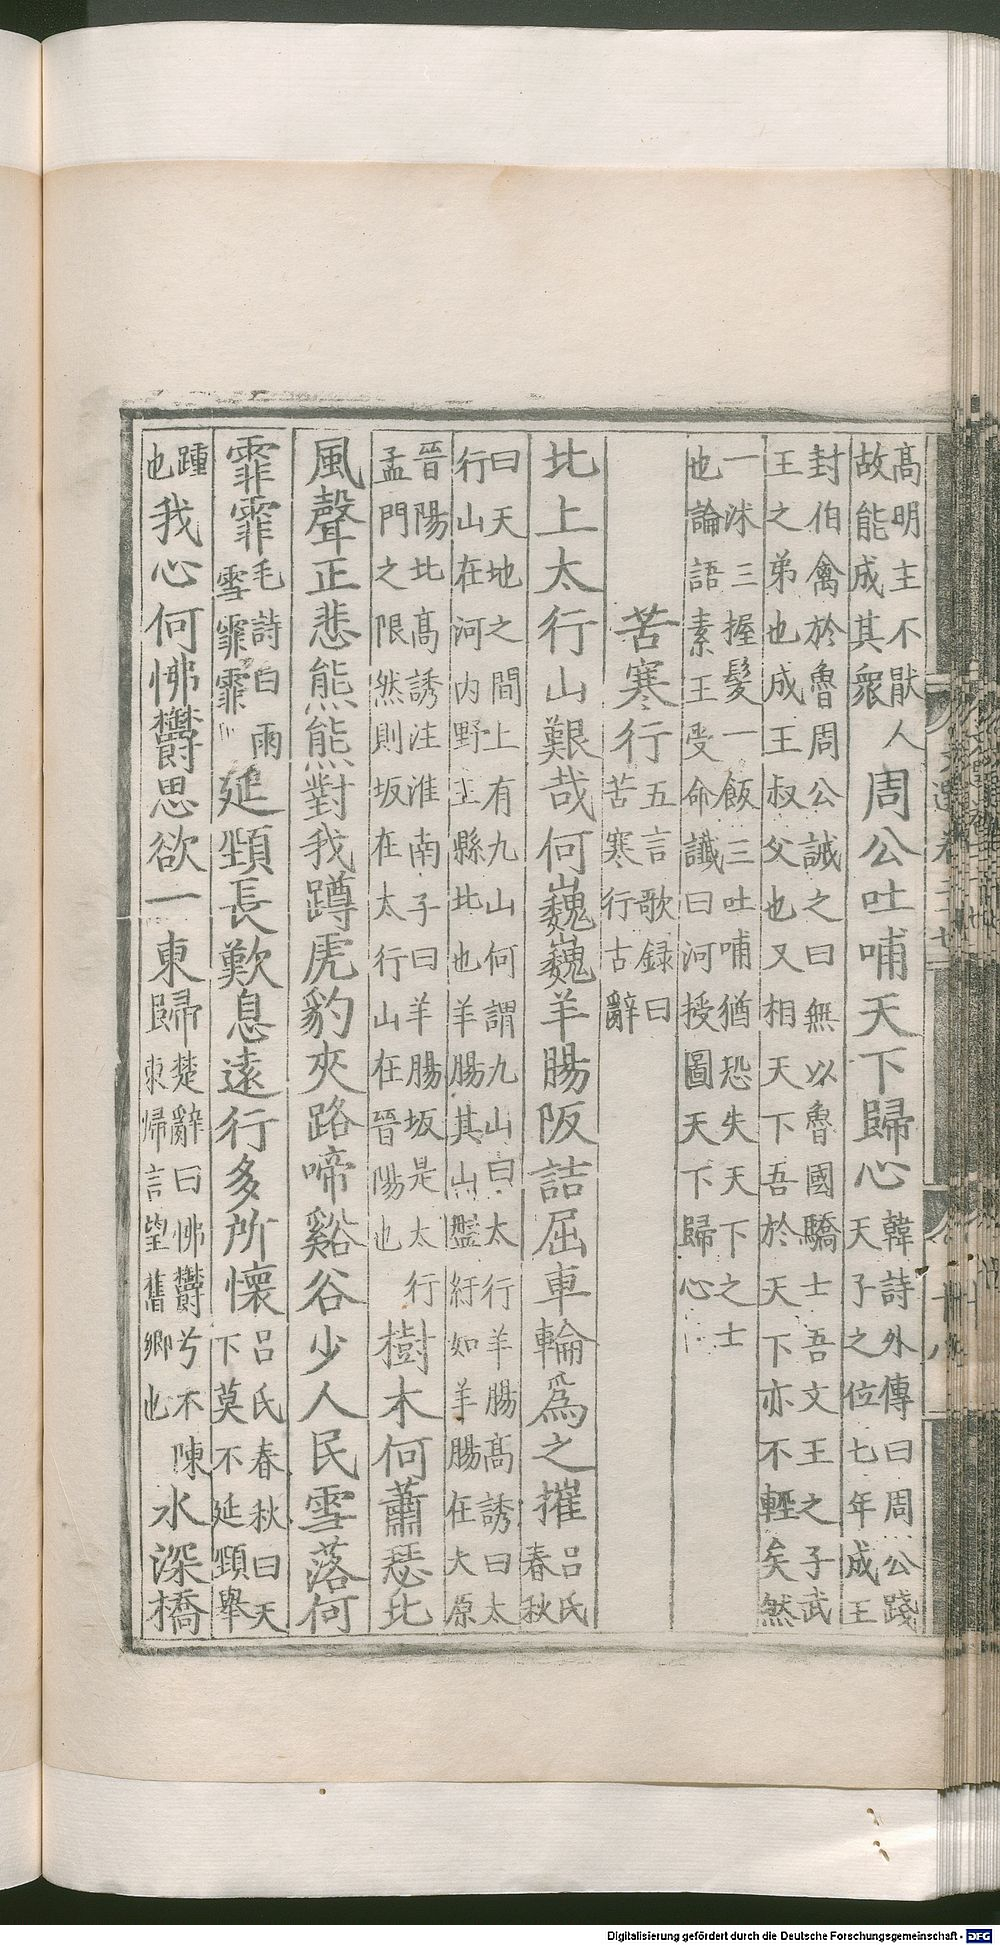 高明主不猒人
故能成其衆周公吐哺天下歸心韓詩外傳曰周公踐
天子之位七年成王
封伯禽於魯周公誡之曰無以魯國驕士吾文王之子武
王之弟也成王叔父也又相天下吾於天下亦不輕矣然
一沐三握髮一飯三吐哺猶恐失天下之士
也論語素王受命讖曰河授圖天下歸心
苦寒行五言歌録曰
苦寒行古辭
北上太行山艱哉何巍巍羊腸阪詰屈車輪爲之摧吕氏
春秋
曰天地之間上有九山何謂九山曰太行羊腸高誘曰太
行山在河内野王縣北也羊腸其山盤紆如羊腸在太原
晉陽北高誘注淮南子曰羊腸坂是太行
孟門之限然則坂在太行山在晉陽也樹木何蕭瑟北
風聲正悲熊熊對我蹲虎豹夾路啼谿谷少人民雪落何
霏霏毛詩曰雨
雪霏霏延頸長歎息遠行多所懷吕氏春秋曰天
下莫不延頸舉
踵
也我心何怫鬱思欲一東歸楚辭曰怫鬱兮不陳
東歸言望舊鄉也水深橋
Digitalisierung gefördert durch die Deutsche Forschungsgemeinschaft - DFG